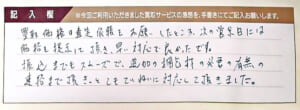 記入欄
※今回ご利用いただきました買取サービスの感想を、手書きにてご記入お願いします。
買取価格の査定依頼をお願いしたところ、次の営業日には
価格を提示して頂き、早い対応で良かったです。
振込までもスムーズで、返却の梱包材の必要の有無の
連絡まで頂き、とてもていねいに対応して頂きました。